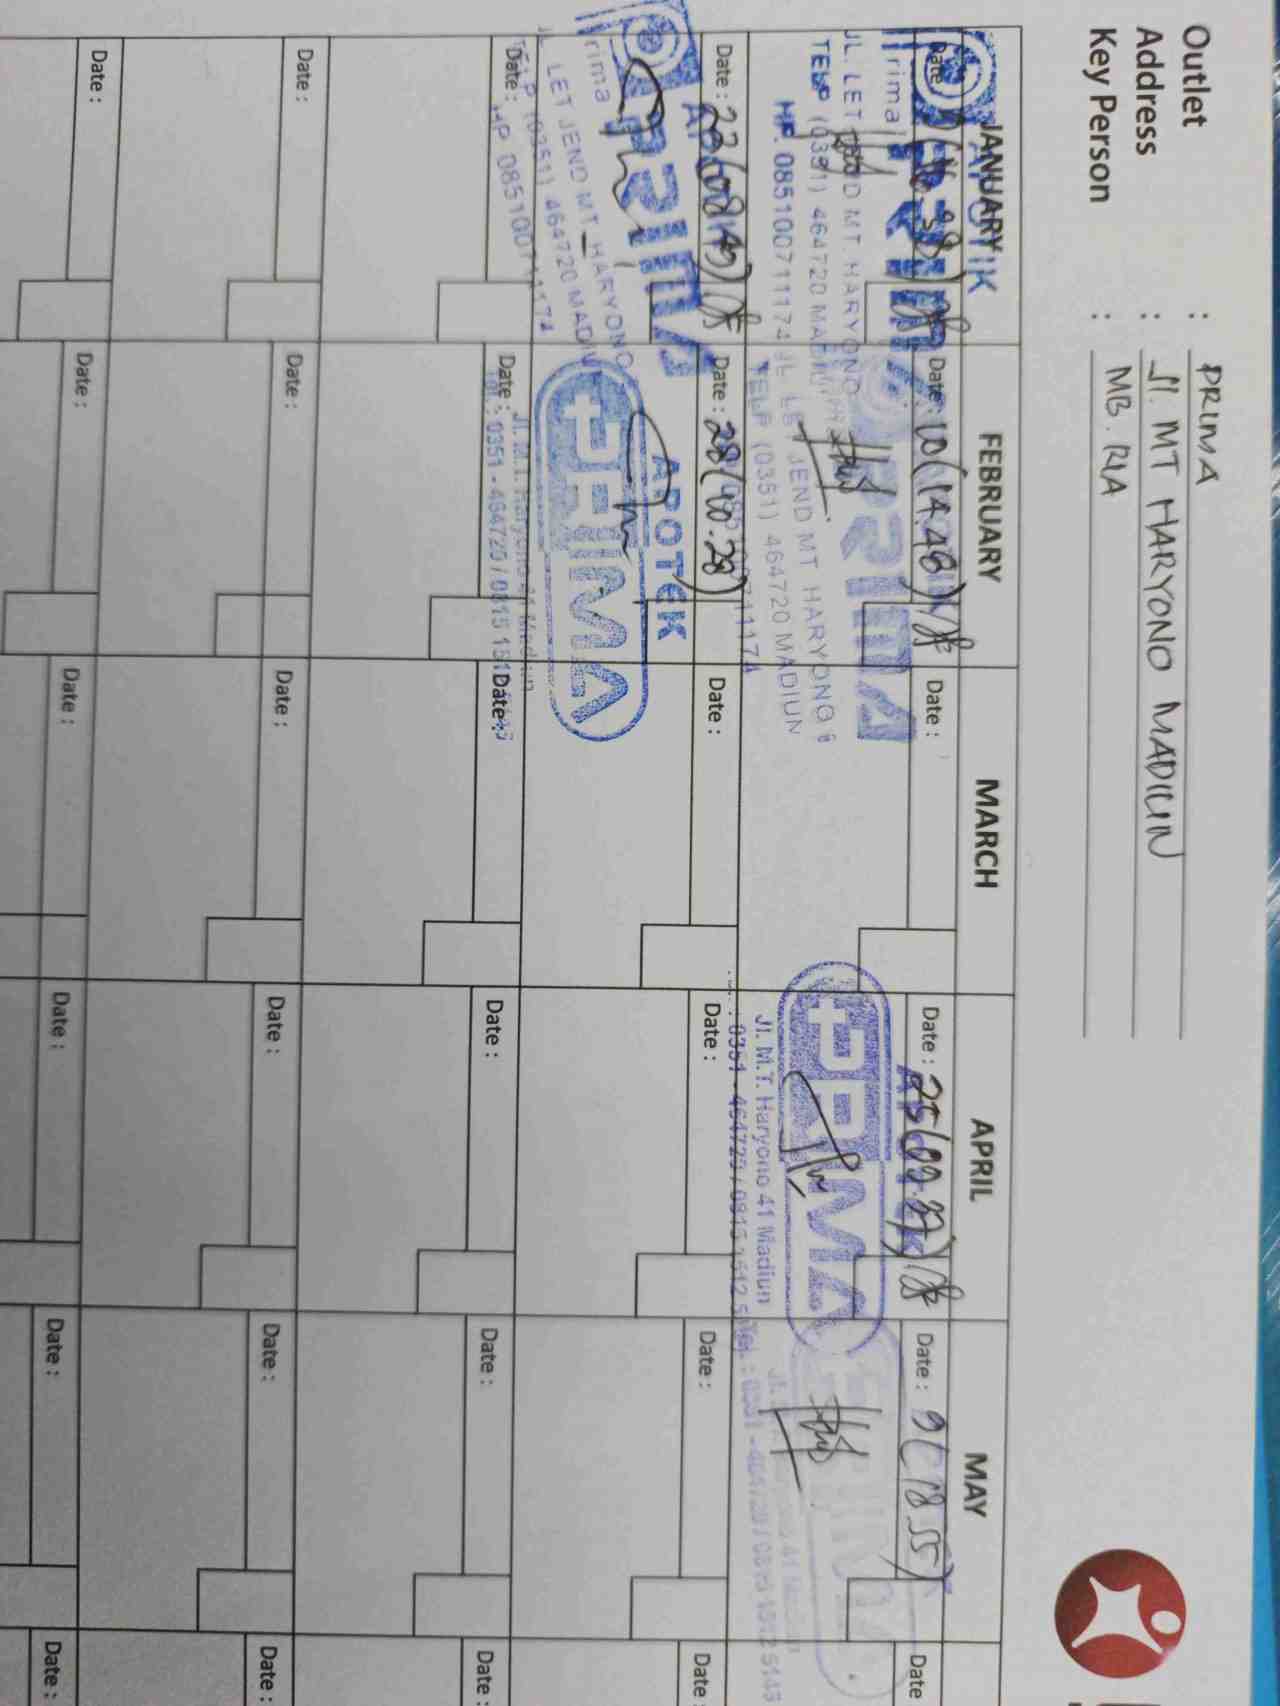 Outlet : PRIMA
Address : Jl. MT HARYONO MADIUN
Key Person : MB. RIA
JANUARY FEBRUARY MARCH APRIL MAY
Date : Date : 10 (14.48) Date : Date : 25 (09.37) Date : 9 (18.55) Date
APOTIK
PRIMA
JL. LET JEND MT HARYONO
TELP (0351) 464720 MADIUN
HP. 085100711174
PRIMA
JL. LET JEND MT HARYONO
TELP (0351) 464720 MADIUN
PRIMA
Jl. M.T. Haryono 41 Madiun
: 0351 - 464720 / 0815 1512
Date : 22 (08.49) Date : 28 (40.28) Date : Date : Date : Date :
PRIMA
JL LET JEND MT HARYONO
TELP (0351) 464720 MADIUN
HP 085100711174
APOTEK
PRIMA
Jl. M.T. Haryono 41 Madiun
: 0351 - 464720 / 0815 151
Date : Date : Date : Date : Date : Date :
Date : Date : Date : Date : Date : Date :
Date : Date : Date : Date : Date : Date :